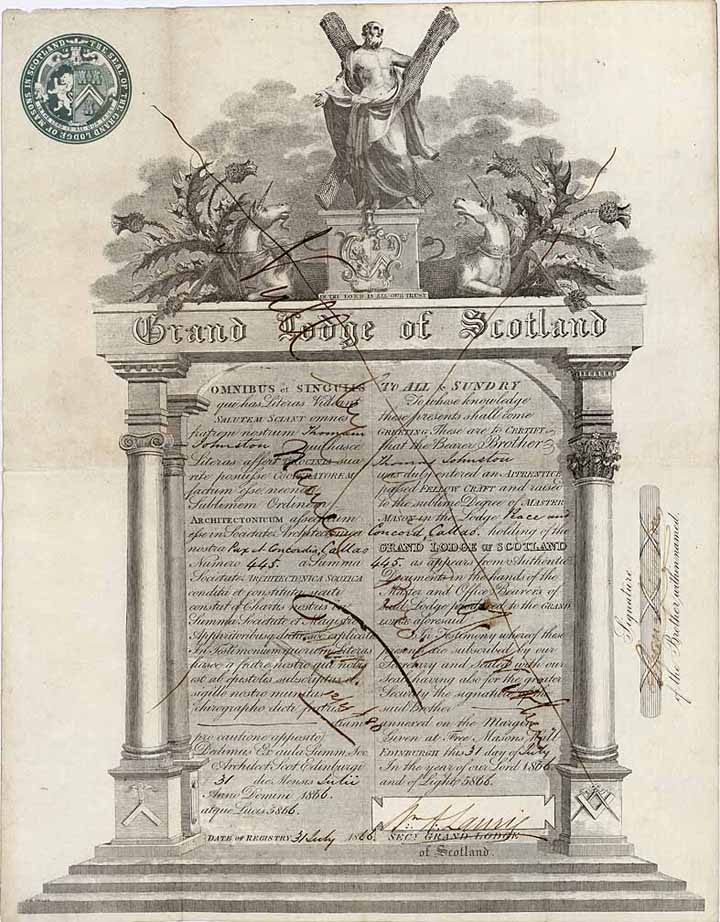 THE SEAL OF THE GRAND LODGE OF MASONS IN SCOTLAND
IN THE LORD IS ALL OUR TRUST
Grand Lodge of Scotland
OMNIBUS et SINGULIS
qui has Literas Viderint
SALUTEM SCIANT omnes
fratrem nostrum Thomam
Johnston quihasce
Literas affert TIROCINIA sua
rite posuisse COOPERATOREM
factum esse, necnon
Sublimem Ordinem
ARCHITECTONICUM assecutum
esse in Societate Architectonica
nostra Pax et Concordia, Callao
Numero 445. a Summa
Societate ARCHITECTONICA SCOTICA
condita et constituta, sicuti
constat e Chartis nostris in
Summa Societate et Magistro
Apparitoribusq
In Testimonium quorum Literas
hasce a fratre nostro qui nobis
est ab epistolis subscriptas et
sigillo nostro munitas
Chirographo dicti fratris
pro cautione apposito
Dedimus Ex aula Summ. Soc
Architect. Scot. Edinburgi
31 die Mensis Julii
Anno Domini 1866.
atque Lucis 5866.
DATE OF REGISTRY 31 July 1866.
TO ALL & SUNDRY
To whose knowledge
these presents shall come
GREETING These are to CERTIFY
that the Bearer Brother
Thomas Johnston
was duly entered an APPRENTICE
passed FELLOW CRAFT and raised
to the sublime Degree of MASTER
MASON in the Lodge Peace and
Concord, Callao. holding of the
GRAND LODGE OF SCOTLAND
445. as appears from Authentic
Documents in the hands of the
Master and Office Bearers of
said Lodge produced to the GRAND
LODGE aforesaid
In Testimony whereof these
presents are subscribed by our
Secretary and Sealed with our
Seal having also for the greater
Security the signature of the
said Brother
annexed on the Margin
Given at Free Masons Hall
EDINBURGH this 31 day of July
In the year of our Lord 1866.
and of Light 5866.
Wm. A. Laurie
SECY. GRAND LODGE
of Scotland.
Signature
of the Brother within named.